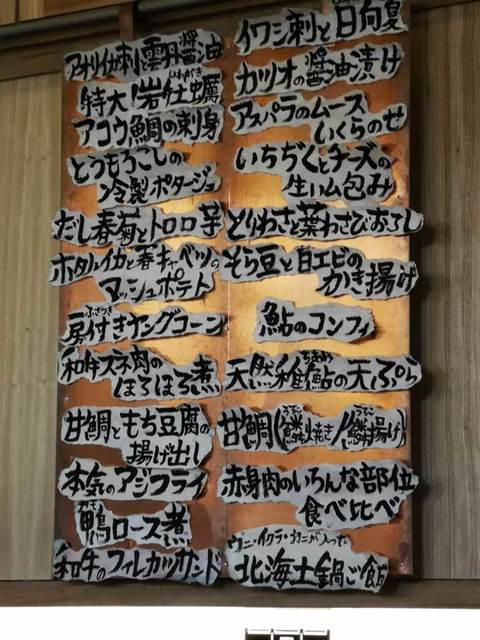 イワシ刺と日向夏
カツオの醤油漬け
アスパラのムース
いくらのせ
いちぢくとチーズの
生ハム包み
とりわさと葉わさびおろし
そら豆と白エビの
かき揚げ
鮎のコンフィ
ちあゆ
天然稚鮎の天ぷら
うろこ うろこ
甘鯛(鱗焼き/鱗揚げ)
赤身肉のいろんな部位
食べ比べ
ウニ・イクラ・カニが入った
北海土鍋ご飯
アオリイカ刺雲丹醤油
いわがき
特大!岩牡蠣
アコウ鯛の刺身
とうもろこしの
冷製ポタージュ
だし春菊とトロロ芋
ホタルイカと春キャベツの
マッシュポテト
ふさつき
房付きヤングコーン
和牛スネ肉の
ほろほろ煮
甘鯛ともち豆腐の
揚げ出し
本気のアジフライ
かも
鴨ロース煮
和牛のフィレカツサンド